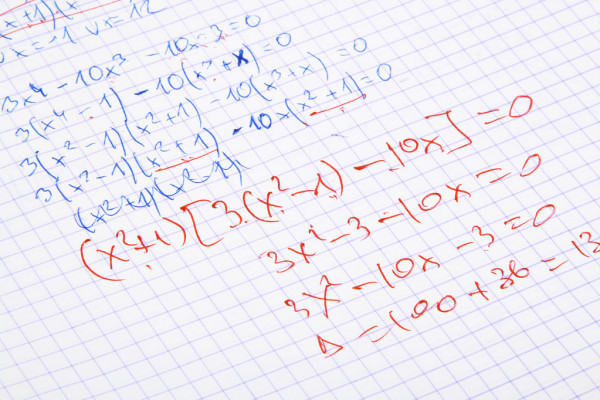 x+1)(x
x=-1 ∨ x=12
3x⁴ - 10x³ - 10x-3=0
3(x⁴ - 1) - 10(x³ + x)=0
3(x² - 1)(x²+1) - 10(x³+x)=0
3(x²-1)(x²+1) - 10x(x²+1)=0
(x²+1)(x²-1)
(x²+1)[3(x²-1) - 10x] =0
3x²-3-10x=0
3x²-10x-3=0
Δ=100+36=13